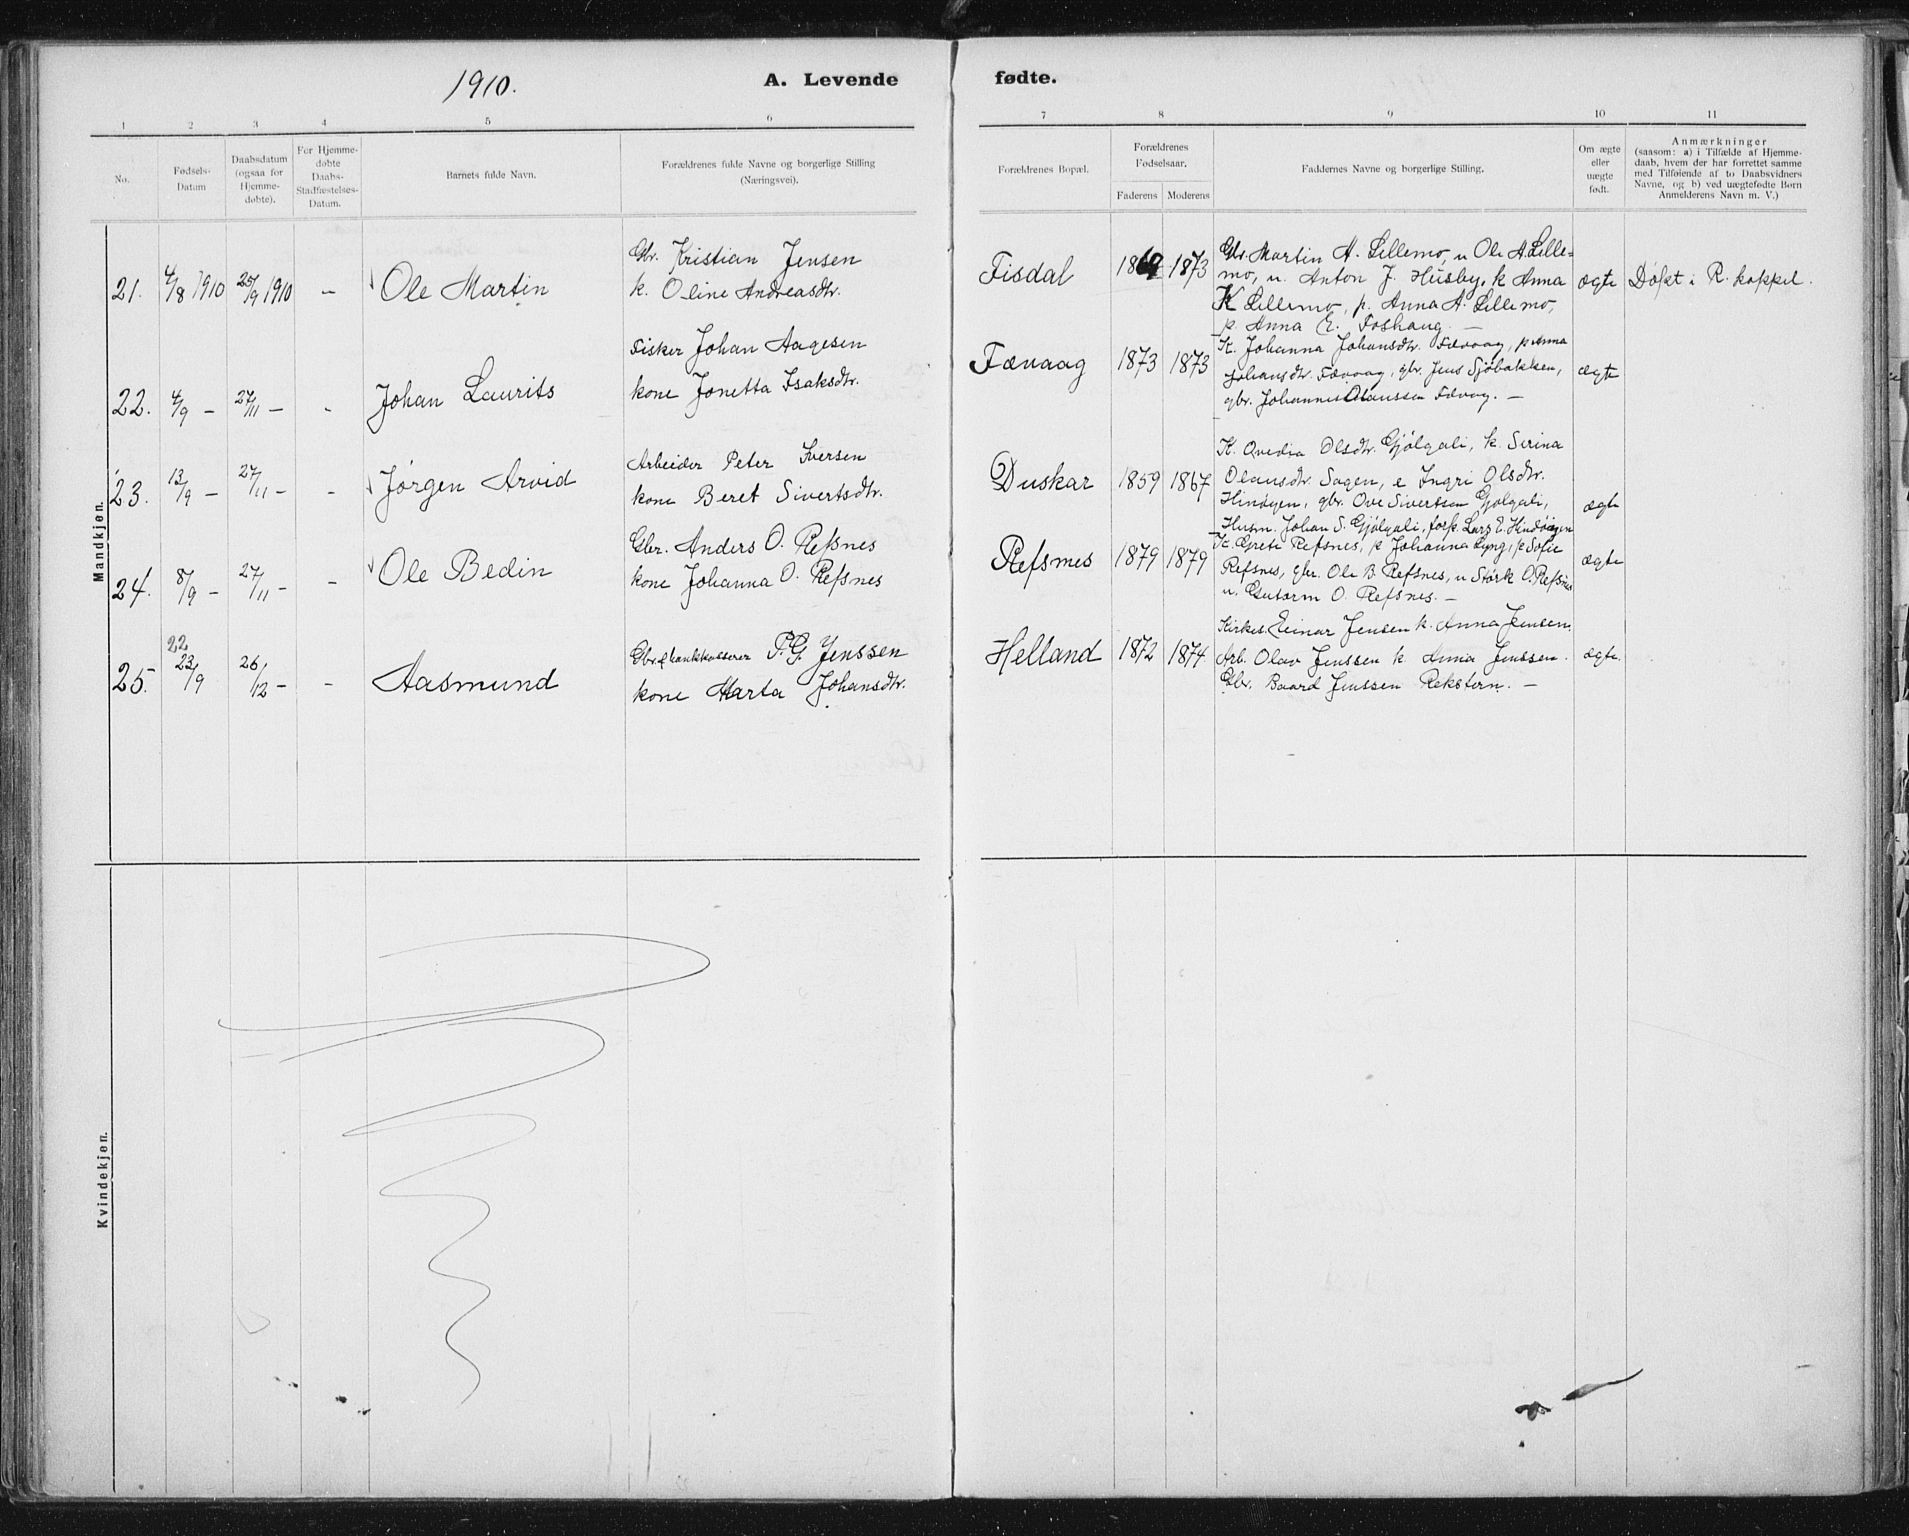 1910.
A. Levende fødte.
1 2 3 4 5 6 7 8 9 10 11
No.
Fødsels-
Datum
Daabsdatum
(ogsaa for
Hjemme-
døbte).
For Hjemme-
døbte
Daabs-
Stadfæstelses-
Datum.
Barnets fulde Navn.
Forældrenes fulde Navne og borgerlige Stilling
(Næringsvei).
Forældrenes Bopæl.
Forældrenes
Fødselsaar.
Faderens Moderens
Faddernes Navne og borgerlige Stilling.
Om ægte
eller
uægte
født.
Anmærkninger
(saasom: a) i Tilfælde af Hjemme-
daab, hvem der har forrettet samme
med Tilføiende af to Daabsvidners
Navne, og b) ved uægtefødte Børn
Anmelderens Navn m. V.)
Mandkjøn.
21. 4/8 1910 25/9 1910 - Ole Martin
Gbr. Kristian Jensen
k. Oline Andreasdtr.
Fisdal 1869 1873
Gbr. Martin A. Lillemo, u Ole A. Lille-
mo, u. Anton J. Husby, k Anna
K Lillemo, p. Anna A. Lillemo,
p. Anna E. Foshaug. —
ægte Døpt i R. kappel.
22. 4/9 - 27/11 - - Johan Laurits
Fisker Johan Aagesen
kone Jonetta Isaksdtr.
Fævaag 1873 1873
K. Johanna Johansdtr. Fævaag, p Anna
Johansdtr. Fævaag, gbr. Jens Sjöbakken,
gbr. Johannes Olaussen Fævag. —
ægte
23. 13/9 - 27/11 - - Jørgen Arvid
Arbeider Peter Iversen
kone Beret Sivertsdtr.
Duskar 1859 1867
K. Ovedia Olsdtr. Gjölgali, k. Serina
Olausdtr. Sagen, e Ingri Olsdtr.
Hinöyen, gbr. Ove Sivertsen Gjölgali,
Husm. Johan S. Gjölgali, forp. Lars E. Hindöien
ægte
24. 8/9 - 27/11 - - Ole Bedin
Gbr. Anders O. Refsnes
kone Johanna O. Refsnes
Refsnes 1879 1879
K. Grete Refsnes, p Johanna Lyng, p Sofie
Refsnes, gbr. Ole B Refsnes, u Störk O. Refsnes
u. Gutorm O. Refsnes. —
ægte
25. 22 23/9 26/12 - - Aasmund
Gbr. & bankkasserer P. G. Jenssen
kone Marta Johansdtr.
Helland 1872 1874
Kirkes. Einar Jensen k. Anna Jensen.
Arb. Olav Jenssen k Anna Jenssen.
Gbr. Baard Jenssen Rekstern. —
ægte.
Kvindekjøn.